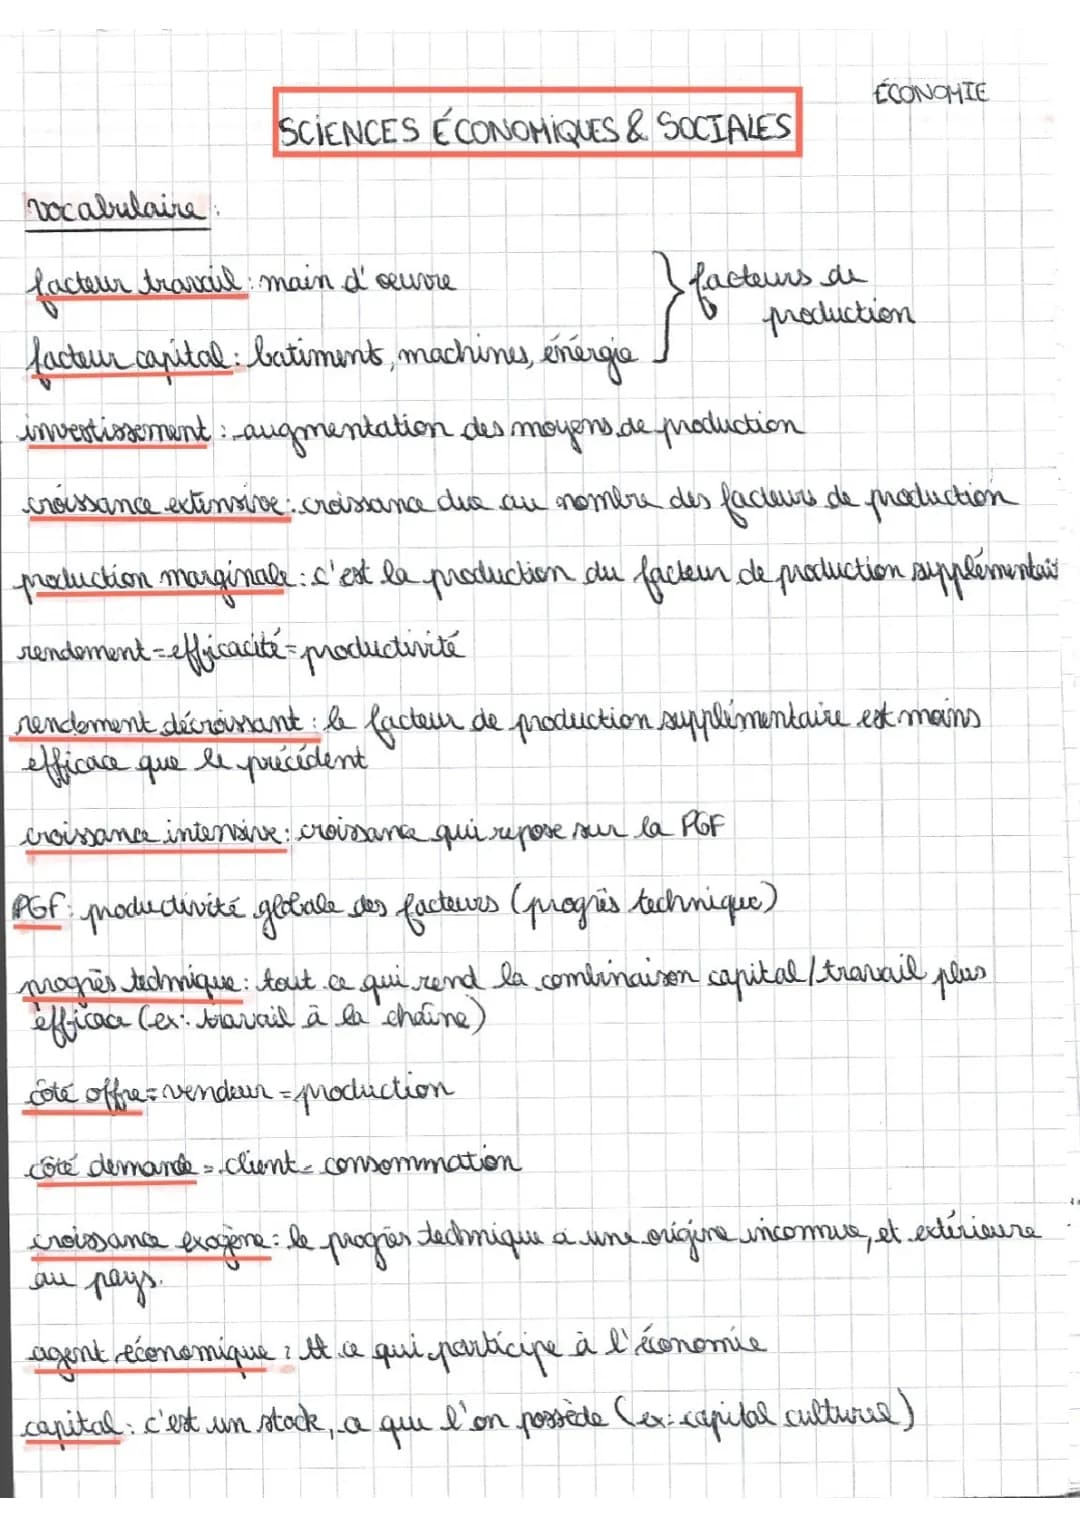 ÉCONOMIE
SCIENCES ÉCONOMIQUES & SOCIALES
vocabulaire :
facteur travail : main d'œuvre
facteur capital : batiments, machines, énergie
} facteurs de
production
investissement : augmentation des moyens de production
croissance extensive : croissance due au nombre des facteurs de production
production marginale : c'est la production du facteur de production supplémentair
rendement = efficacité = productivité
rendement décroissant : le facteur de production supplémentaire est moins
efficace que le précédent
croissance intensive : croissance qui repose sur la PGF
PGF : productivité globale des facteurs (progrès technique)
progrès technique : tout ce qui rend la combinaison capital/travail plus
efficace (ex : travail à la chaîne)
côté offre = vendeur = production
côté demande = client = consommation
croissance exogène : le progrès technique a une origine inconnue, et extérieure
au pays.
agent économique : tt ce qui participe à l'économie
capital : c'est un stock, ce que l'on possède (ex : capital culturel)